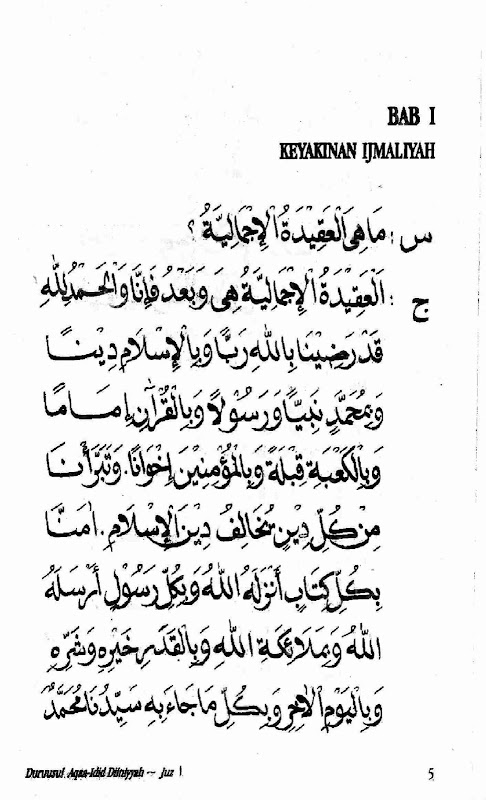 BAB I
KEYAKINAN IJMALIYAH
س : مَا هِيَ الْعَقِيْدَةُ الْإِجْمَالِيَّةُ ؟
ج : اَلْعَقِيْدَةُ الْإِجْمَالِيَّةُ هِيَ وَبَعْدُ فَإِنَّا وَالْحَمْدُ لِلّٰهِ
قَدْ رَضِيْنَا بِاللّٰهِ رَبًّا وَبِالْإِسْلَامِ دِيْنًا
وَبِمُحَمَّدٍ نَبِيًّا وَرَسُوْلًا وَبِالْقُرْآنِ إِمَامًا
وَبِالْكَعْبَةِ قِبْلَةً وَبِالْمُؤْمِنِيْنَ إِخْوَانًا. وَتَبَرَّأْنَا
مِنْ كُلِّ دِيْنٍ يُخَالِفُ دِيْنَ الْإِسْلَامِ. اٰمَنَّا
بِكُلِّ كِتَابٍ أَنْزَلَهُ اللّٰهُ وَبِكُلِّ رَسُوْلٍ أَرْسَلَهُ
اللّٰهُ وَبِمَلَائِكَةِ اللّٰهِ وَبِالْقَدَرِ خَيْرِهِ وَشَرِّهِ
وَبِالْيَوْمِ الْاٰخِرِ وَبِكُلِّ مَا جَاءَ بِهِ سَيِّدُنَا مُحَمَّدٌ
Duruusul Aqaa-Idid Diiniyyah — Juz 1
5